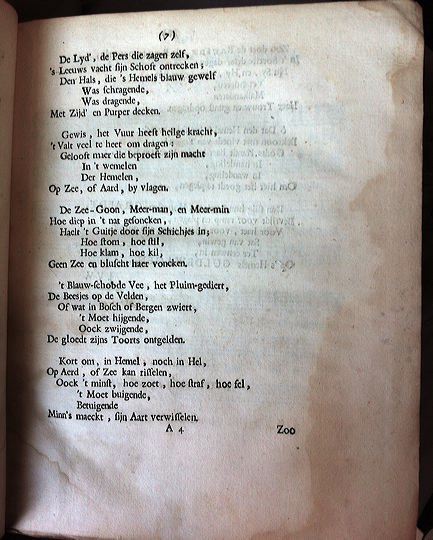 (7)
De Lyd', de Pers die zagen zelf,
's Leeuws vacht sijn Schoft ontrecken;
Den Hals, die 's Hemels blauw gewelf
Was schragende,
Was dragende,
Met Zijd' en Purper decken.
Gewis, het Vuur heeft heilge kracht,
't Valt veel te heet om dragen:
Gelooft mier die beproeft zijn macht
In 't wemelen
Der Hemelen,
Op Zee, of Aard, by vlagen.
De Zee-Goon, Meer-man, en Meer-min
Hoe diep in 't nat gesoncken,
Haelt 't Guitje door sijn Schichjes in;
Hoe stom, hoe stil,
Hoe klam, hoe kil,
Geen Zee en bluscht haer voncken.
't Blauw-schobde Vee, het Pluim-gediert,
De Beesjes op de Velden,
Of wat in Bosch of Bergen zwiert,
't Moet hijgende,
Oock zwijgende,
De gloedt zijns Toorts ontgelden.
Kort om, in Hemel, noch in Hel,
Op Aerd, of Zee kan risselen,
Oock 't minst, hoe zoet, hoe straf, hoe fel,
't Moet buigende,
Betuigende
Minn's maeckt, sijn Aart verwisselen.
A 4 Zoo